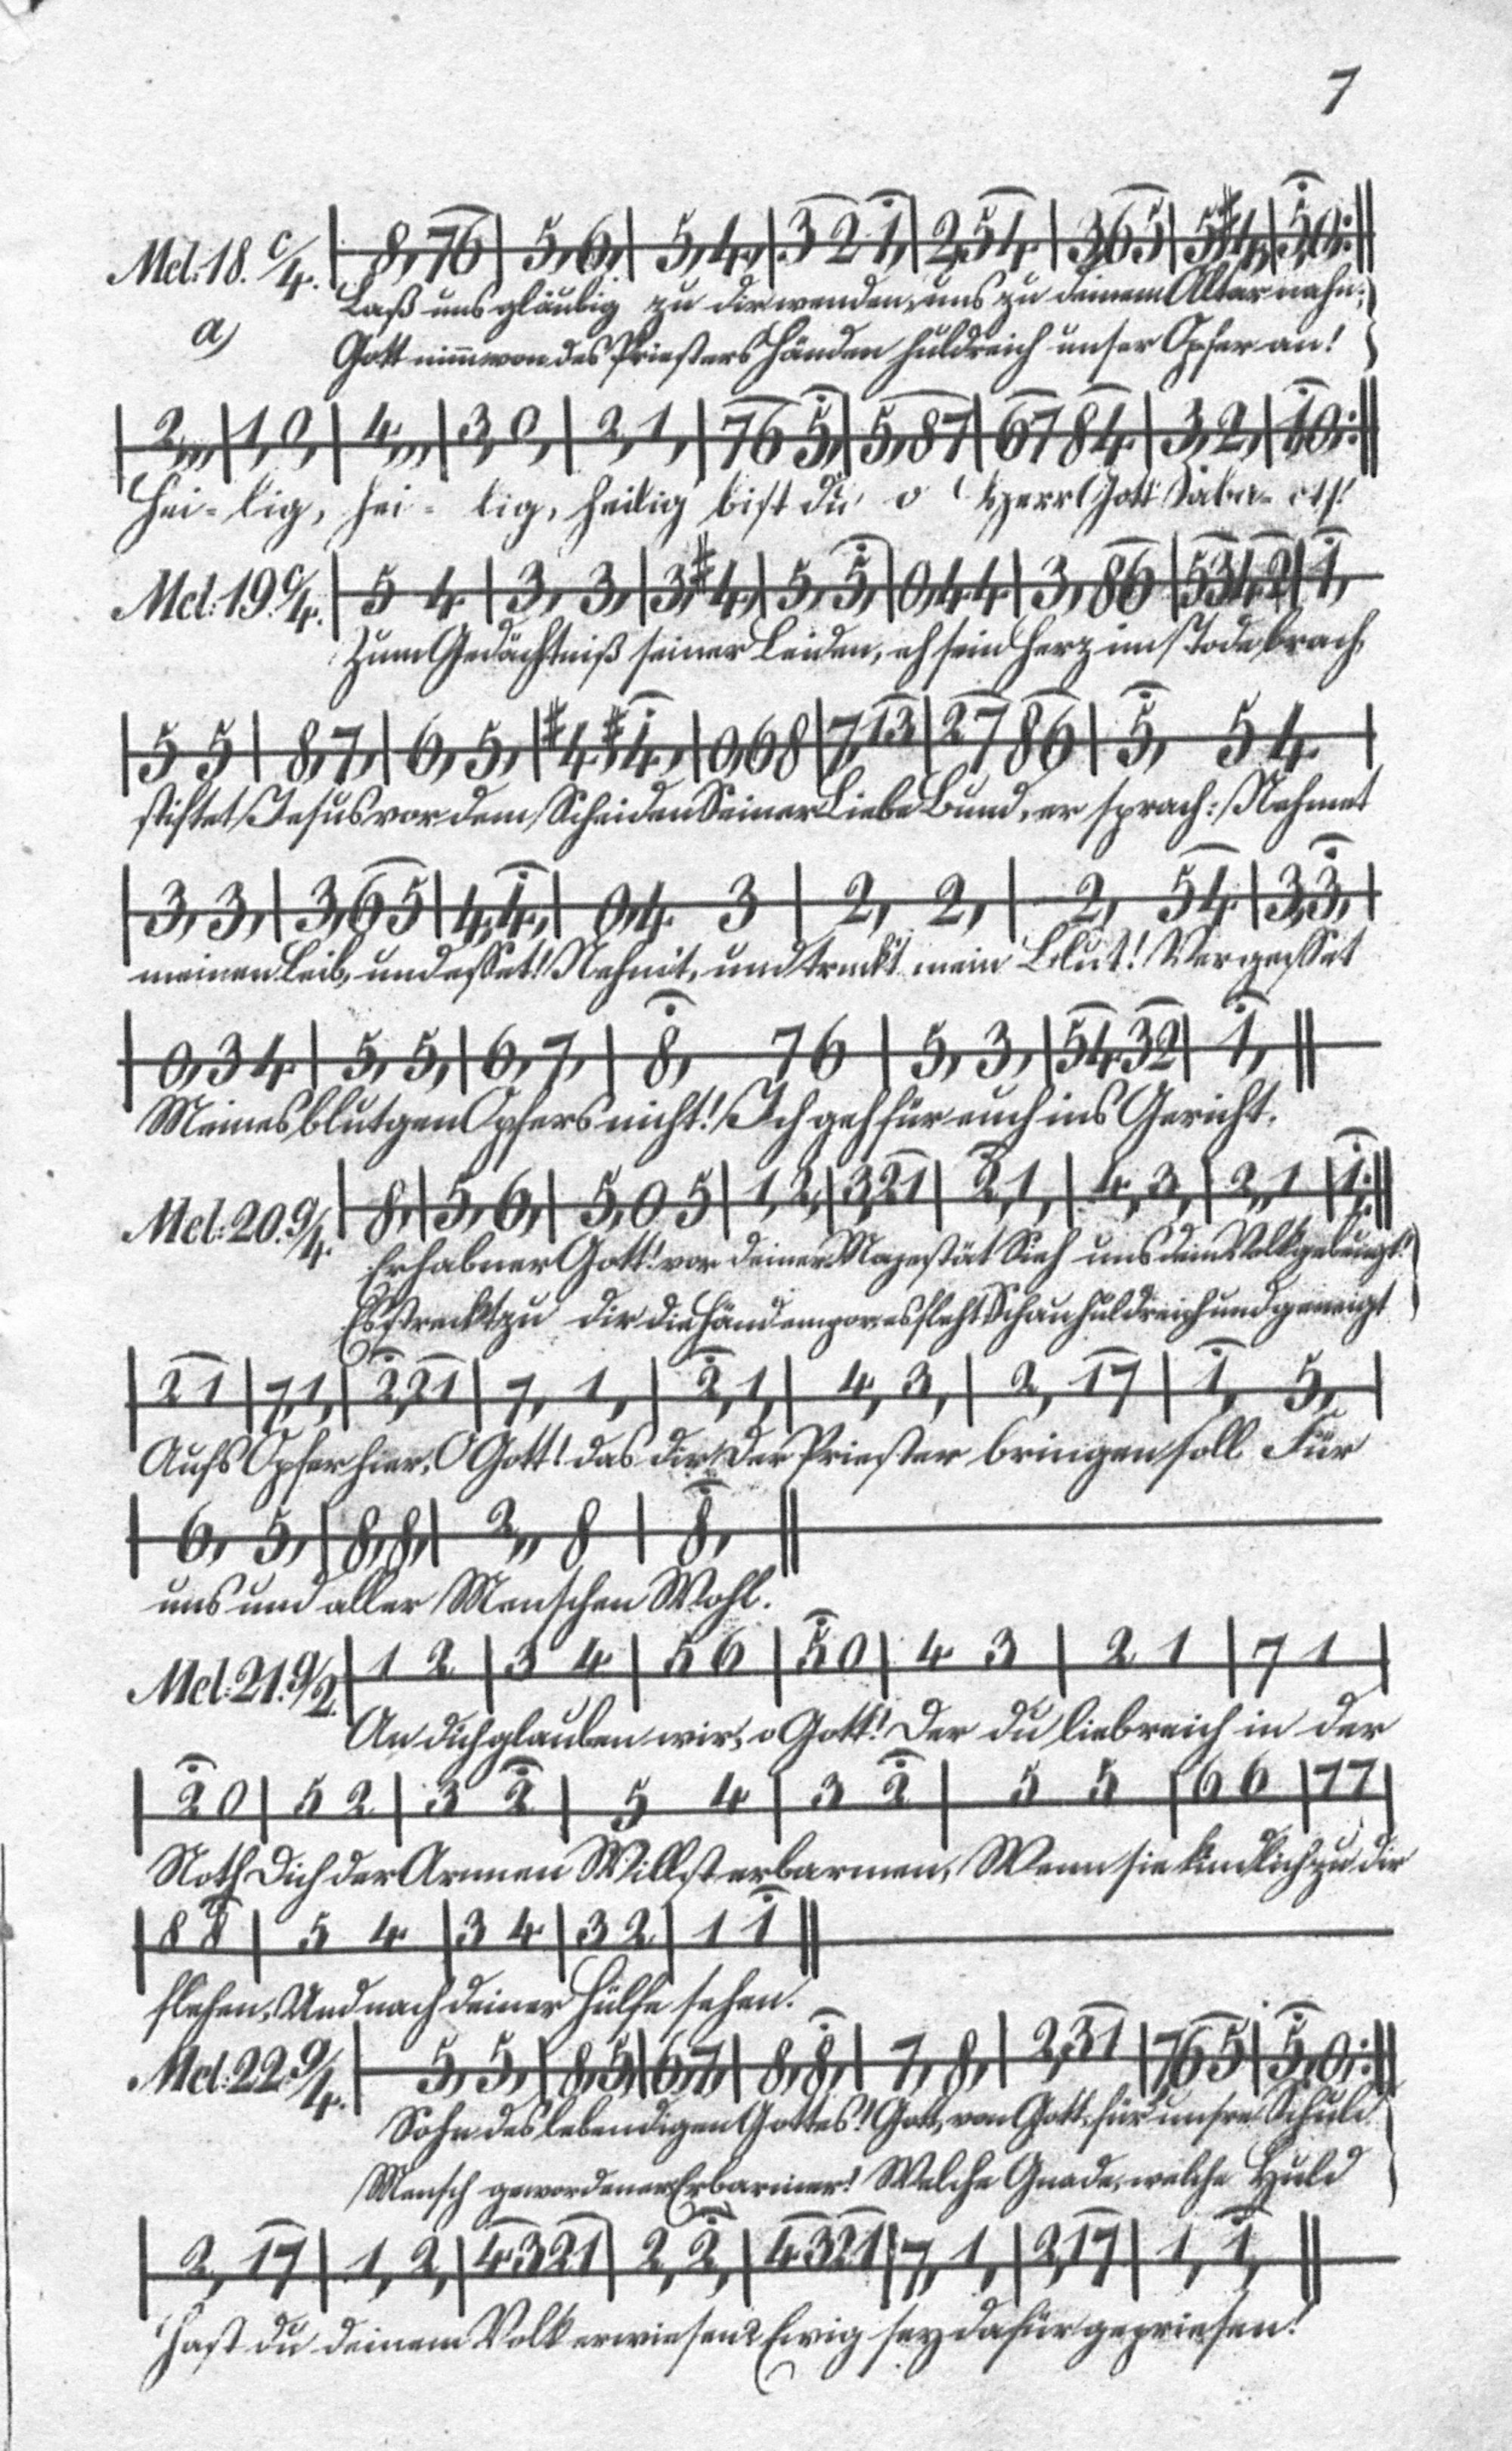 7
Mel: 18. c/4. | 8, 76 | 5, 6, | 5, 4, | 3 2 1, | 2, 5 4 | 3 6 5 | 5, #4, | 5, 0, :||
Laß uns gläubig zu dir wenden, uns zu deinem Altar nahn;
a) Gott nimm von des Priesters Händen huldreich unser Opfer an!
| 2,,, | 1, 0, | 4,,, | 3, 0, | 2, 1, | 7 6 5, | 5, 8 7 | 6 7 8 4 | 3, 2, | 1, 0, :||
Hei = lig, hei = lig, heilig bist du o Herr Gott Saba = oth!
Mel: 19. c/4. | 5 4 | 3, 3, | 3, #4, | 5, 5, | 0, 4 4 | 3, 8 6 | 5 3 4 2 | 1,
Zum Gedächtniß seiner Leiden, eh sein Herz im Tode brach,
| 5 5 | 8, 7, | 6, 5, | #4, #4, | 0, 6 8 | 7, 1 3 | 2 7 8 6 | 5, 5 4 |
stiftet Jesus vor dem Scheiden Seiner Liebe Bund, er sprach: Nehmet
| 3, 3, | 3, 6 5 | 4, 4, | 0, 4 3 | 2, 2, | 2, 5 4 | 3, 3, |
meinen Leib, und esset! Nehmt, und trinkt mein Blut! Vergesset
| 0, 3 4 | 5, 5, | 6, 7, | 8, 7 6 | 5, 3, | 5 4 3 2 | 1, ||
Meines blutgen Opfers nicht! Ich geh für euch ins Gericht.
Mel: 20. g/4. | 8, | 5, 6, | 5, 0 5 | 1, 2, | 3, 2 1 | 2, 1, | 4, 3, | 2,, 1 | 1, :||
Erhabner Gott! vor deiner Majestät Sieh uns dein Volk gebeugt!
Es streckt zu dir die Händ empor, es fleht Schau huldreich und geneigt
| 2 1 | 7, 1, | 2, 2 1 | 7, 1, | 2, 1, | 4, 3, | 2, 1 7 | 1, 5, |
Aufs Opfer hier, O Gott! das dir Der Priester bringen soll Für
| 6, 5, | 8, 8, | 2,, 8 | 8, ||
uns und aller Menschen Wohl.
Mel: 21. g/2. | 1 2 | 3 4 | 5 6 | 5 0 | 4 3 | 2 1 | 7 1 |
An dich glauben wir, o Gott! Der du liebreich in der
| 2 0 | 5 2 | 3 2 | 5 4 | 3 2 | 5 5 | 6 6 | 7 7 |
Noth Dich der Armen Willst erbarmen, Wenn sie kindlich zu dir
| 8 8 | 5 4 | 3 4 | 3 2 | 1 1 ||
flehen, Und nach deiner Hülfe sehen.
Mel: 22. g/4. | 5, 5, | 8, 5, | 6, 7, | 8, 8, | 7, 8, | 2, 3 1 | 7, 6 5 | 5, 0, :||
Sohn des lebendigen Gottes! Gott, von Gott, für unsre Schuld
Mensch gewordener Erbarmer! Welche Gnade, welche Huld
| 2, 1 7 | 1, 2, | 4 3 2 1 | 2, 2, | 4 3 2 1 | 7, 1, | 2, 1 7 | 1, 1, ||
Hast du deinem Volk erwiesen? Ewig sey dafür gepriesen!